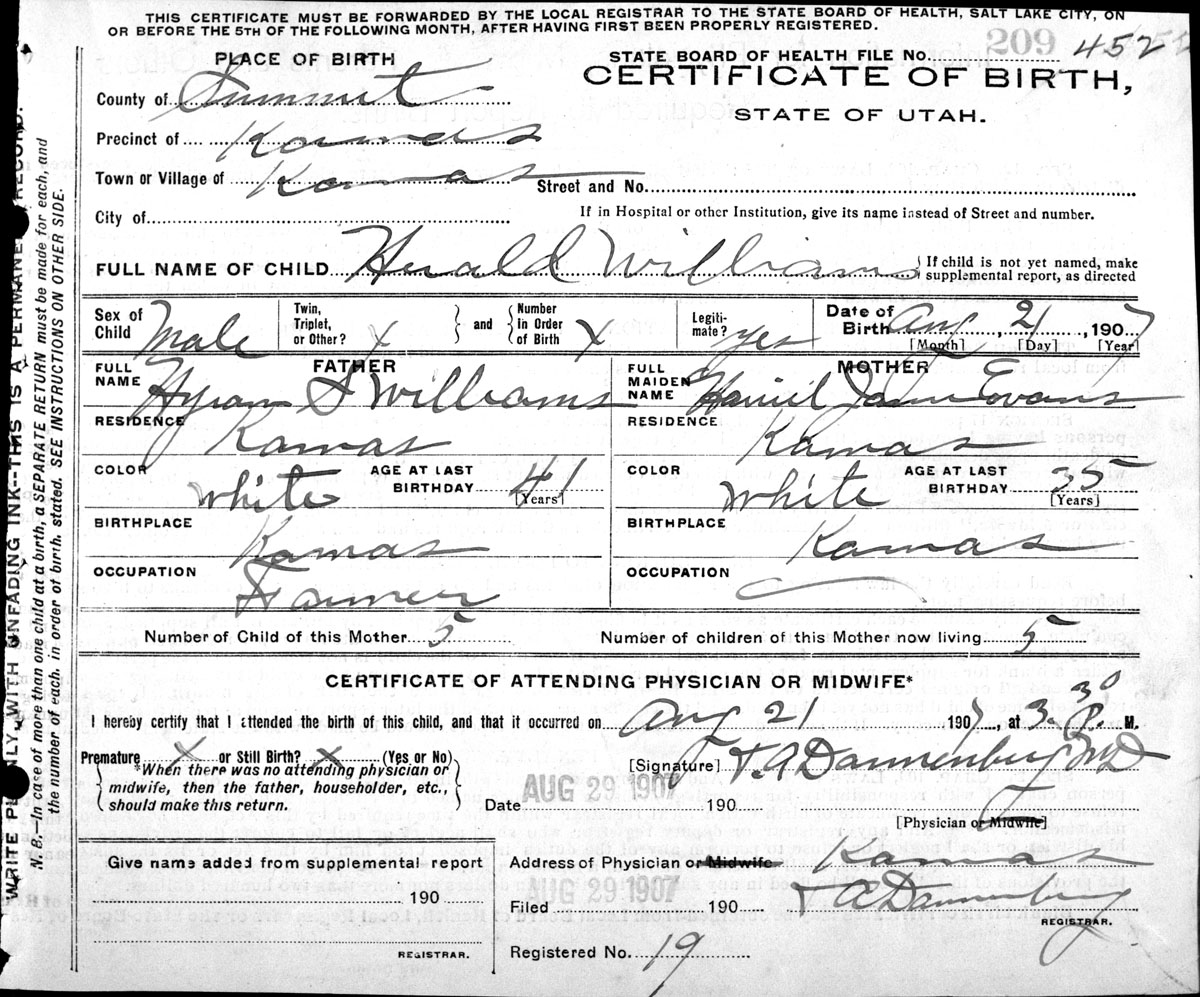 THIS CERTIFICATE MUST BE FORWARDED BY THE LOCAL REGISTRAR TO THE STATE BOARD OF HEALTH, SALT LAKE CITY, ON
OR BEFORE THE 5TH OF THE FOLLOWING MONTH, AFTER HAVING FIRST BEEN PROPERLY REGISTERED.
PLACE OF BIRTH
STATE BOARD OF HEALTH FILE No. 209 452
County of Summit
CERTIFICATE OF BIRTH,
STATE OF UTAH.
Precinct of Kamas
Town or Village of Kamas Street and No.
City of
If in Hospital or other Institution, give its name instead of Street and number.
FULL NAME OF CHILD Herald Williams { If child is not yet named, make
supplemental report, as directed
Sex of Child Male
Twin, Triplet, or Other? X } and { Number in Order of Birth X
Legiti- mate? yes
Date of Birth Aug, 21, 1907
[Month] [Day] [Year]
FATHER
FULL NAME Hyrum S Williams
MOTHER
FULL MAIDEN NAME Evans
RESIDENCE Kamas
RESIDENCE Kamas
COLOR white AGE AT LAST BIRTHDAY 41 [Years]
COLOR white AGE AT LAST BIRTHDAY 35 [Years]
BIRTHPLACE Kamas
BIRTHPLACE Kamas
OCCUPATION Farmer
OCCUPATION
Number of Child of this Mother 5
Number of children of this Mother now living 5
CERTIFICATE OF ATTENDING PHYSICIAN OR MIDWIFE*
I hereby certify that I attended the birth of this child, and that it occurred on Aug 21 1907, at 3.30 P. M.
Premature X or Still Birth? X (Yes or No)
{ *When there was no attending physician or
midwife, then the father, householder, etc.,
should make this return. }
[Signature] T. A Dannenberg MD
Date AUG 29 1907 190
[Physician or Midwife]
Give name added from supplemental report
190
Address of Physician or Midwife Kamas
Filed AUG 29 1907 190 T A Dannenberg
REGISTRAR.
REGISTRAR.
Registered No. 19
WRITE PLAINLY WITH UNFADING INK--THIS IS A PERMANENT RECORD.
N. B.—In case of more than one child at a birth, a SEPARATE RETURN must be made for each, and
the number of each, in order of birth, stated. SEE INSTRUCTIONS ON OTHER SIDE.